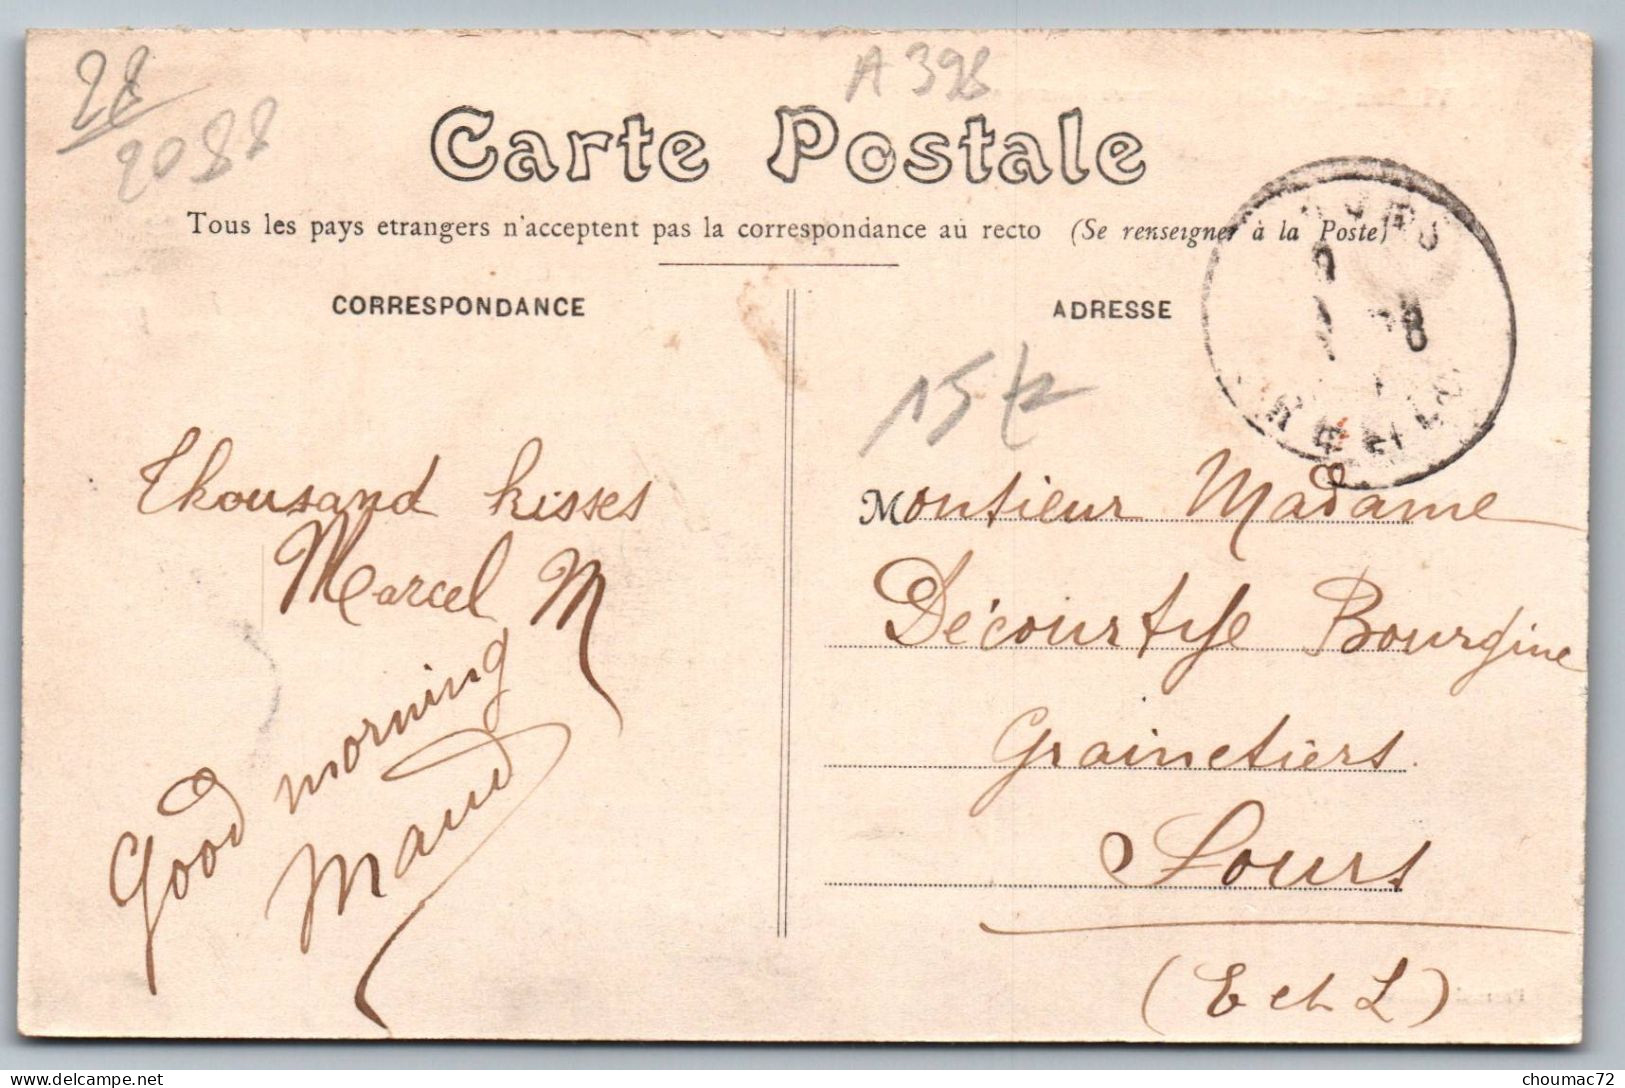 28
2088
A 398
Carte Postale
Tous les pays etrangers n'acceptent pas la correspondance au recto (Se renseigner à la Poste)
CORRESPONDANCE
ADRESSE
Thousand kisses
Marcel M
Good morning
Maud
Monsieur Madame
Décourtye Bourgine
Grainetiers
Tours
(E et L)
choumac72